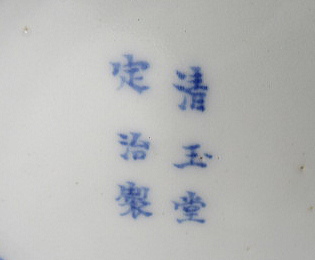 清玉堂
定治製